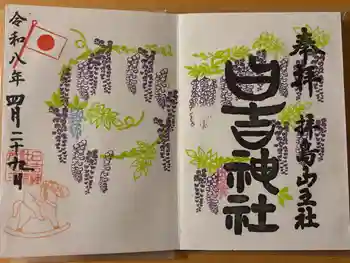 奉拝 拝島山王社
日吉神社
令和八年四月二十九日